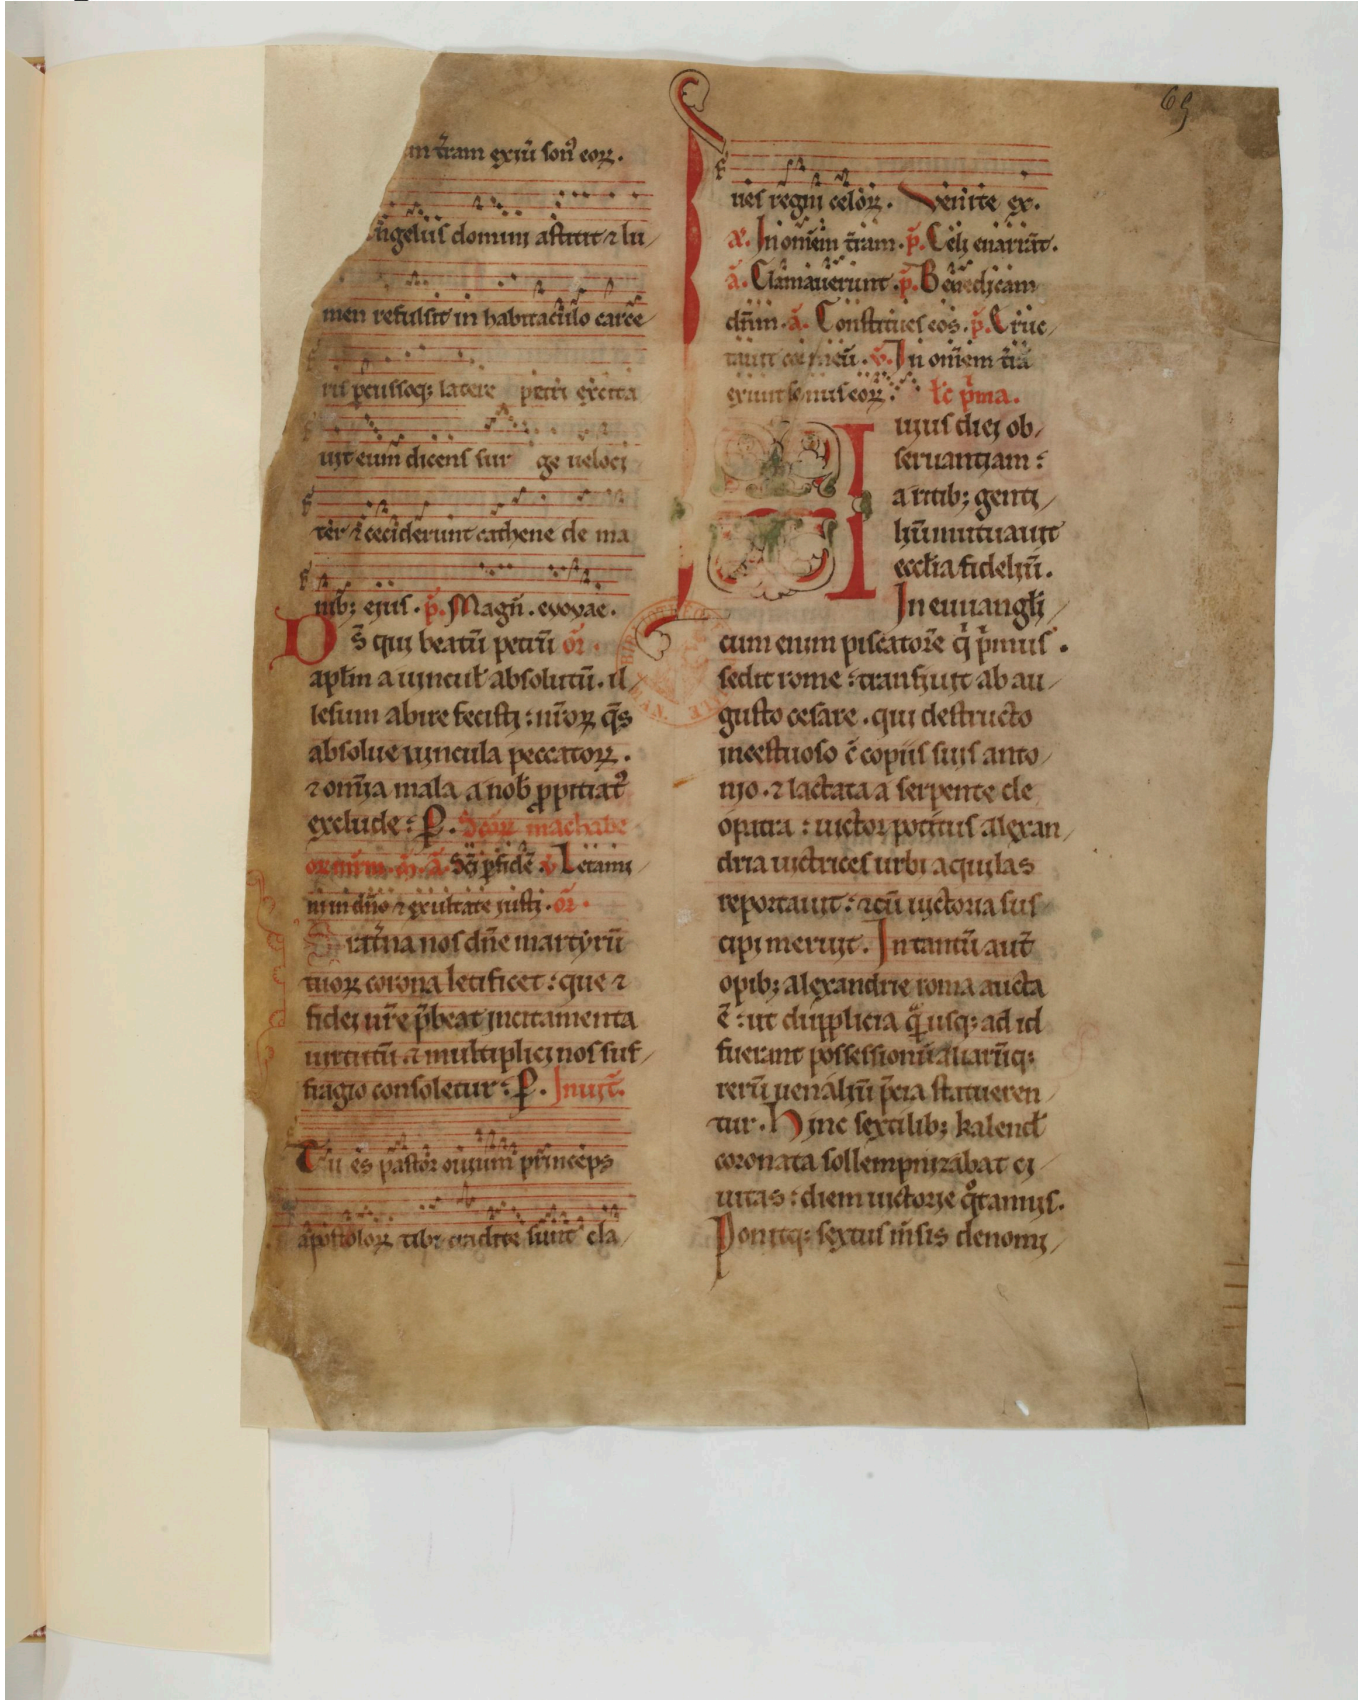 69
m t̄ram exiu̅ son᷒ eoꝝ.
ngelus domini astitit ⁊ lu
men refulsit in habitaculo carce
ris ꝑcussoqꝫ latere petri excita
uit eum dicens sur ge ueloci
ter ⁊ ceciderunt cathene de ma
nibꝫ eius. p̄. Magn̄. evovae.
Ds̄ qui beatu̅ petru̅ or̄.
apl̅m a uincul̅ absolutu̅. il
lesum abire fecisti: nr̄oꝝ q̄s
absolue uincula peccatoꝝ.
⁊ om̅ia mala a nob̅ ꝓpitiat᷒
exclude: P. Sc̄oꝝ machabe
oꝝ mr̄m. a̅. Sc̄i ꝑ fide̅. v̄. Letami
ni in dn̄o ⁊ exultate iusti. or̄.
Frat̄na nos dn̄e martyru̅
tuoꝝ corona letificet: que ⁊
fidei nr̄e p̄beat incitamenta
uirtutu̅ ⁊ multiplici nos suf
fragio consoletur: P. Inuit̄.
Tu es pastor ouium princeps
apostoloꝝ tibi tradite sunt cla
ues regni celoꝝ. Venite ex.
In om̄em t̄ram. p̄. Celi enarrāt.
a̅. Clamauerunt. p̄. Benedicam
dn̄m. a̅. Constitues eos. p̄. Eruc
tauit cor meu̅. v̄. In om̄em t̄ra̅
exiuit sonus eoꝝ. l̄c p̄ma.
HUius diei ob
seruantiam:
a ritibꝫ genti
liu̅ mutuauit
eccl̅ia fideliu̅.
In euuangl̅i
cum enim piscatore̅ q̍ p̍mus.
sedit rome: transiuit ab au
gusto cesare. qui destructo
incestuoso c̄ copiis suis anto
nio. ⁊ lactata a serpente cle
opatra: uictor potitus alexan
dria uictrices urbi aquilas
reportauit: ⁊ cu̅ uictoria sus
cipi meruit. In tantu̅ aut̅
opibꝫ alexandrie roma aucta
ē: ut dupplicia q̄ usqꝫ ad id
fuerant possessionu̅ aliarūqꝫ
reru̅ uenaliu̅ p̄cia statueren
tur. Hinc sextilibꝫ kalend̅
coronata sollempnizabat ci
uitas: diem uictorie q̊tannis.
Ponitqꝫ sextus m̄sis denomi